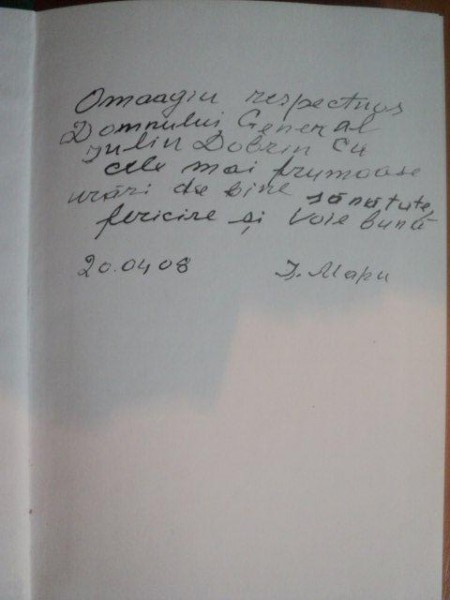 Omoagiu respectuos
Domnului General
Iulin Dobrin Cu
cele mai frumoase
urări de bine sănătate,
fericire și Voie bună
20.04 08 I. Mapu